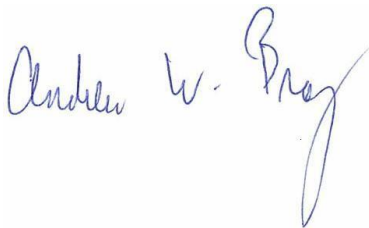 Andrew W. Bray